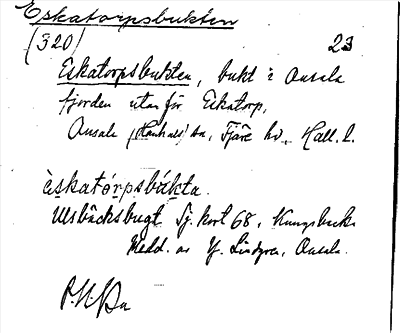 Eskatorpsbukten
(320) 23
Eskatorpsbukten, bukt i Onsala
fjorden utanför Eskatorp,
Onsala sn, Fjäre hd, Hall. l.
èskatórpsbúkta.
Ulsbäcksbugt Sj. kort 68, Kungsbacka
Medd. av Hj. Lindgren, Onsala.